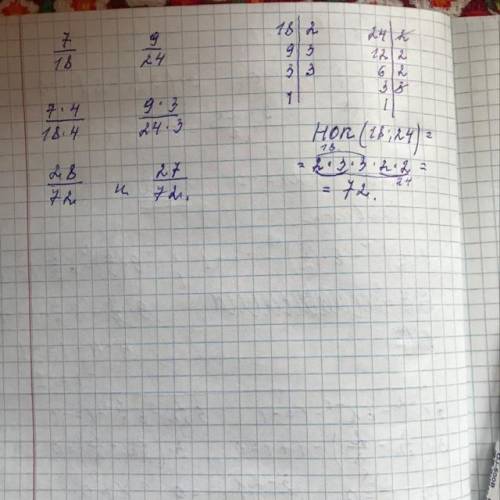 7/18 9/24
7·4/18·4 9·3/24·3
28/72 и 27/72.
18 | 2
9 | 3
3 | 3
1
24 | 2
12 | 2
6 | 2
3 | 3
1
НОК (18; 24) =
18
= 2·3·3·2·2 =
24
= 72.